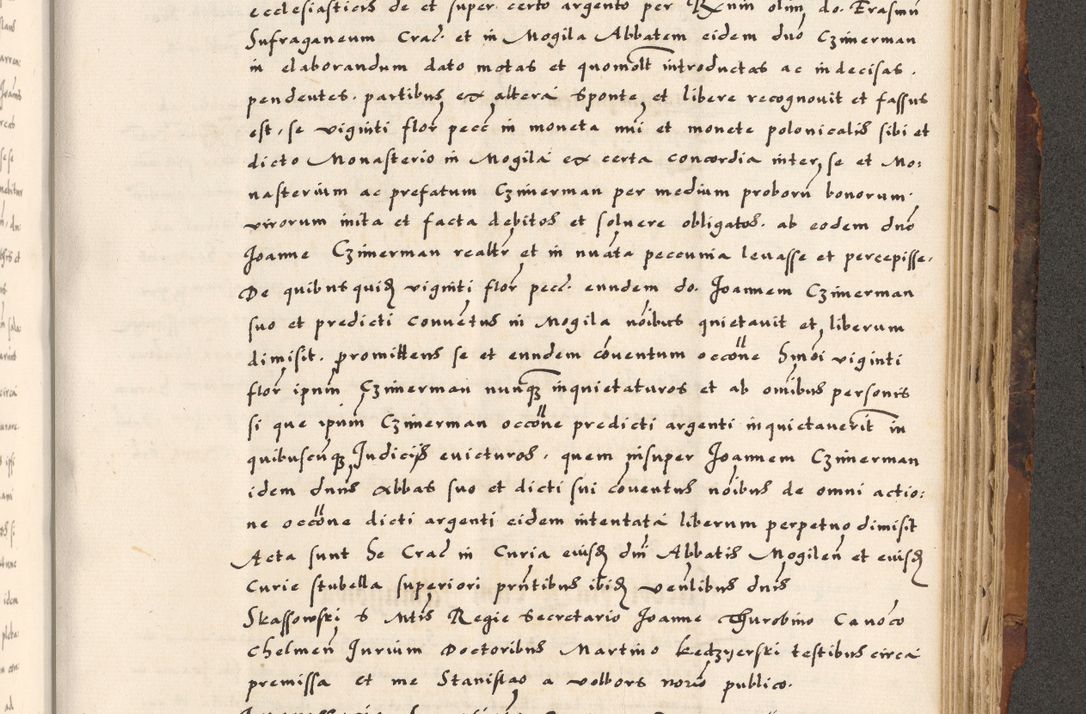 ecclesiasticis de et super certo argento per Rnm olim do. Erasmu
Sufraganeum Crac. et in Mogila Abbatem eidem dno Czimerman
in elaborandum dato motas et quomolt introductas ac indecisas.
pendentes. partibus ex altera sponte et libere recognovit et fassus
est. se viginti flor pecc in moneta mi et monete polonicalis sibi et
dicto Monasterio in Mogila ex certa concordia inter se et Mo:
nasterium ac prefatum Czimerman per medium proboru bonorum
virorum inita et facta debitos et soluere obligatos. ab eodem dno
Joanne Czimerman realtr et in nuata peccunia leuasse et percepisse.
De quibusquidem viginti flor pecc. eundem do. Joannem Czimerman
suo et predicti conuetus in Mogila noibus quietauit et liberum
dimisit. promittens se et eundem couentum occone Smoi viginti
flor ipnm Czimerman nunqz inquietaturos et ab omibus personis
si que ipnm Czimerman occone predicti argenti inquietauerit in
quibuscuqz Judicijs euicturos. quem insuper Joannem Czimerman
idem dnus Abbas suo et dicti sui couentus noibus de omni actio:
ne occone dicti argenti eidem intentata liberum perpetuo dimisit
Acta sunt he Crac in Curia eiusd dni Abbatis Mogilen et eiusd
Curie stubella superiori prntibus ibid venlibus dnis
Skassowski S Mtis Regie Secretario Joanne Thurobino Canoco
Chelmen Jurium Doctoribus Martino Kedzyerski testibus circa
premissa et me Stanislao a wolbors norio publico.